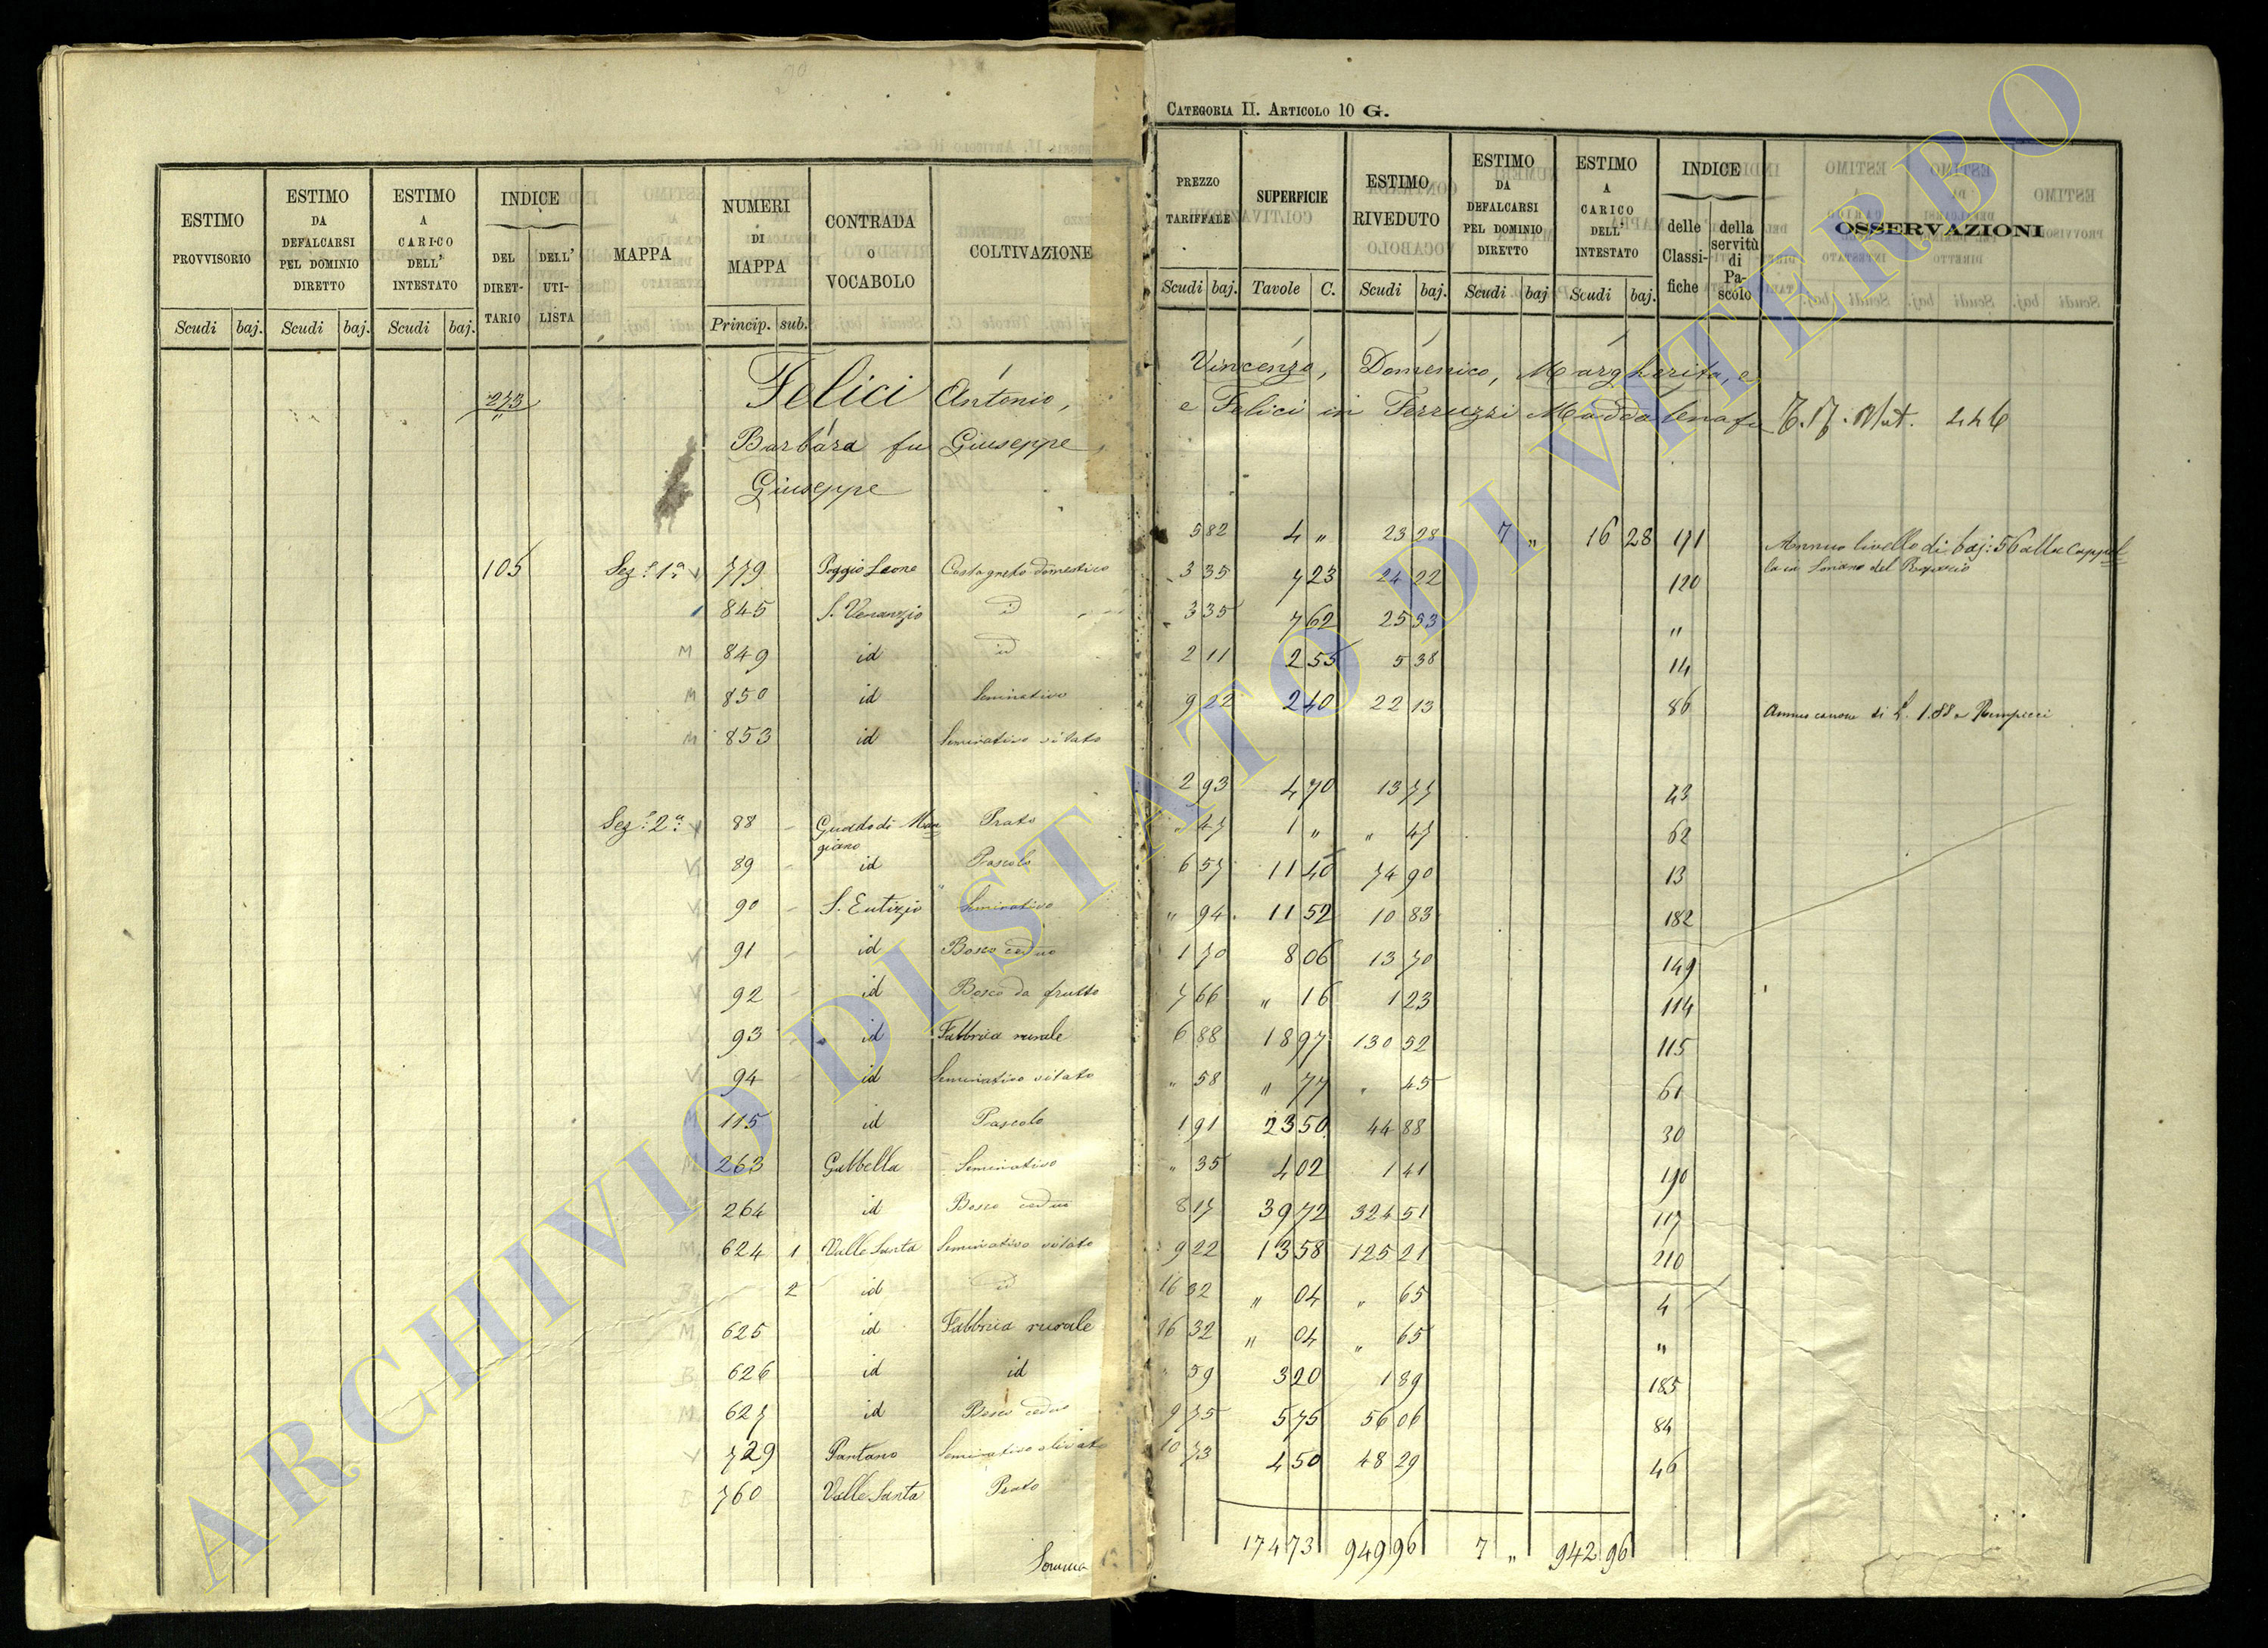 CATEGORIA II. ARTICOLO 10 G.
ESTIMO PROVVISORIO Scudi baj.
ESTIMO DA DEFALCARSI PEL DOMINIO DIRETTO Scudi baj.
ESTIMO A CARICO DELL' INTESTATO Scudi baj.
INDICE DEL DIRET-TARIO DELL' UTI-LISTA
MAPPA
NUMERI DI MAPPA Princip. sub.
CONTRADA O VOCABOLO
COLTIVAZIONE
PREZZO TARIFFALE Scudi baj.
SUPERFICIE Tavole C.
ESTIMO RIVEDUTO Scudi baj.
ESTIMO DA DEFALCARSI PEL DOMINIO DIRETTO Scudi baj
ESTIMO A CARICO DELL' INTESTATO Scudi baj.
INDICE delle Classi-fiche della servitù di Pa-scolo
OSSERVAZIONI
273 Felici Antonio, Vincenzo, Domenico, Margherita, e
Barbara fu Giuseppe, e Felici in Ferruzzi Maddalena fu
Giuseppe
105 Sez.e 1a V 779 Poggio Leone Castagneto domestico 5 82 4 " 23 28 7 " 16 28 171 Annuo livello di baj: 56 alla Cappel
la in Soriano del Rosario
845 S. Venanzio id 3 35 7 23 24 22 120
M 849 id id 3 35 7 62 25 53 "
M 850 id Seminativo 2 11 2 55 5 38 14
M 853 id Seminativo vitato 9 22 2 40 22 13 86 Annuo canone di L. 1.88 a
Sez.e 2a V 88 Guado di Man
giano Prato 2 93 4 70 13 77 43
V 89 id Pascolo " 47 1 " " 47 62
V 90 S. Eutizio Seminativo 6 57 11 40 74 90 13
V 91 id Bosco ceduo " 94 11 52 10 83 182
V 92 id Bosco da frutto 1 70 8 06 13 70 149
V 93 id Fabbrica rurale 7 66 " 16 1 23 114
V 94 id Seminativo vitato 6 88 18 97 130 52 115
M 115 id Pascolo " 58 " 77 " 45 61
M 263 Gabbella Seminativo 1 91 23 50 44 88 30
264 id Bosco ceduo " 35 4 02 1 41 190
M 624 1 Valle Santa Seminativo vitato 8 17 39 72 324 51 117
2 id id 9 22 13 58 125 21 210
M 625 id Fabbrica rurale 16 32 " 04 " 65 4
B 626 id id 16 32 " 04 " 65 "
M 627 id Bosco ceduo " 59 3 20 1 89 185
V 729 Pantano Seminativo olivato 9 75 5 75 56 06 84
760 Valle Santa Prato 10 73 4 50 48 29 46
Somma 174 73 949 96 7 " 942 96
ARCHIVIO DI STATO DI VITERBO